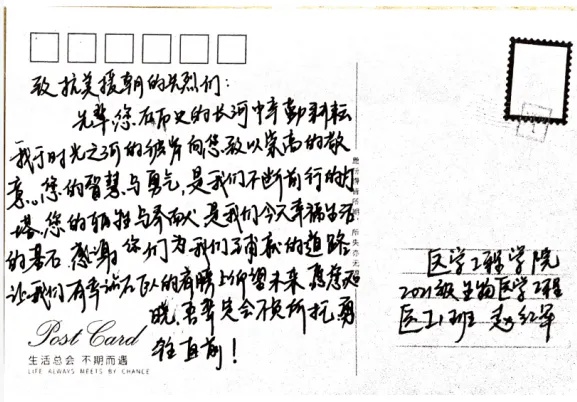 致抗美援朝的先烈们：
先辈，您在历史的长河中辛勤耕耘
我于时光之河的彼岸向您致以崇高的敬
意。您的智慧与勇气，是我们不断前行的灯
塔，您的牺牲与奉献是我们今天幸福生活
的基石 感谢你们为我们开辟的道路
让我们有幸站在巨人的肩膀上仰望未来
晓，吾辈定会不负所托 勇
往直前！
Post Card
生活总会 不期而遇
LIFE ALWAYS MEETS BY CHANCE
医学工程学院
2021级生物医学工程
医工1班 赵红军